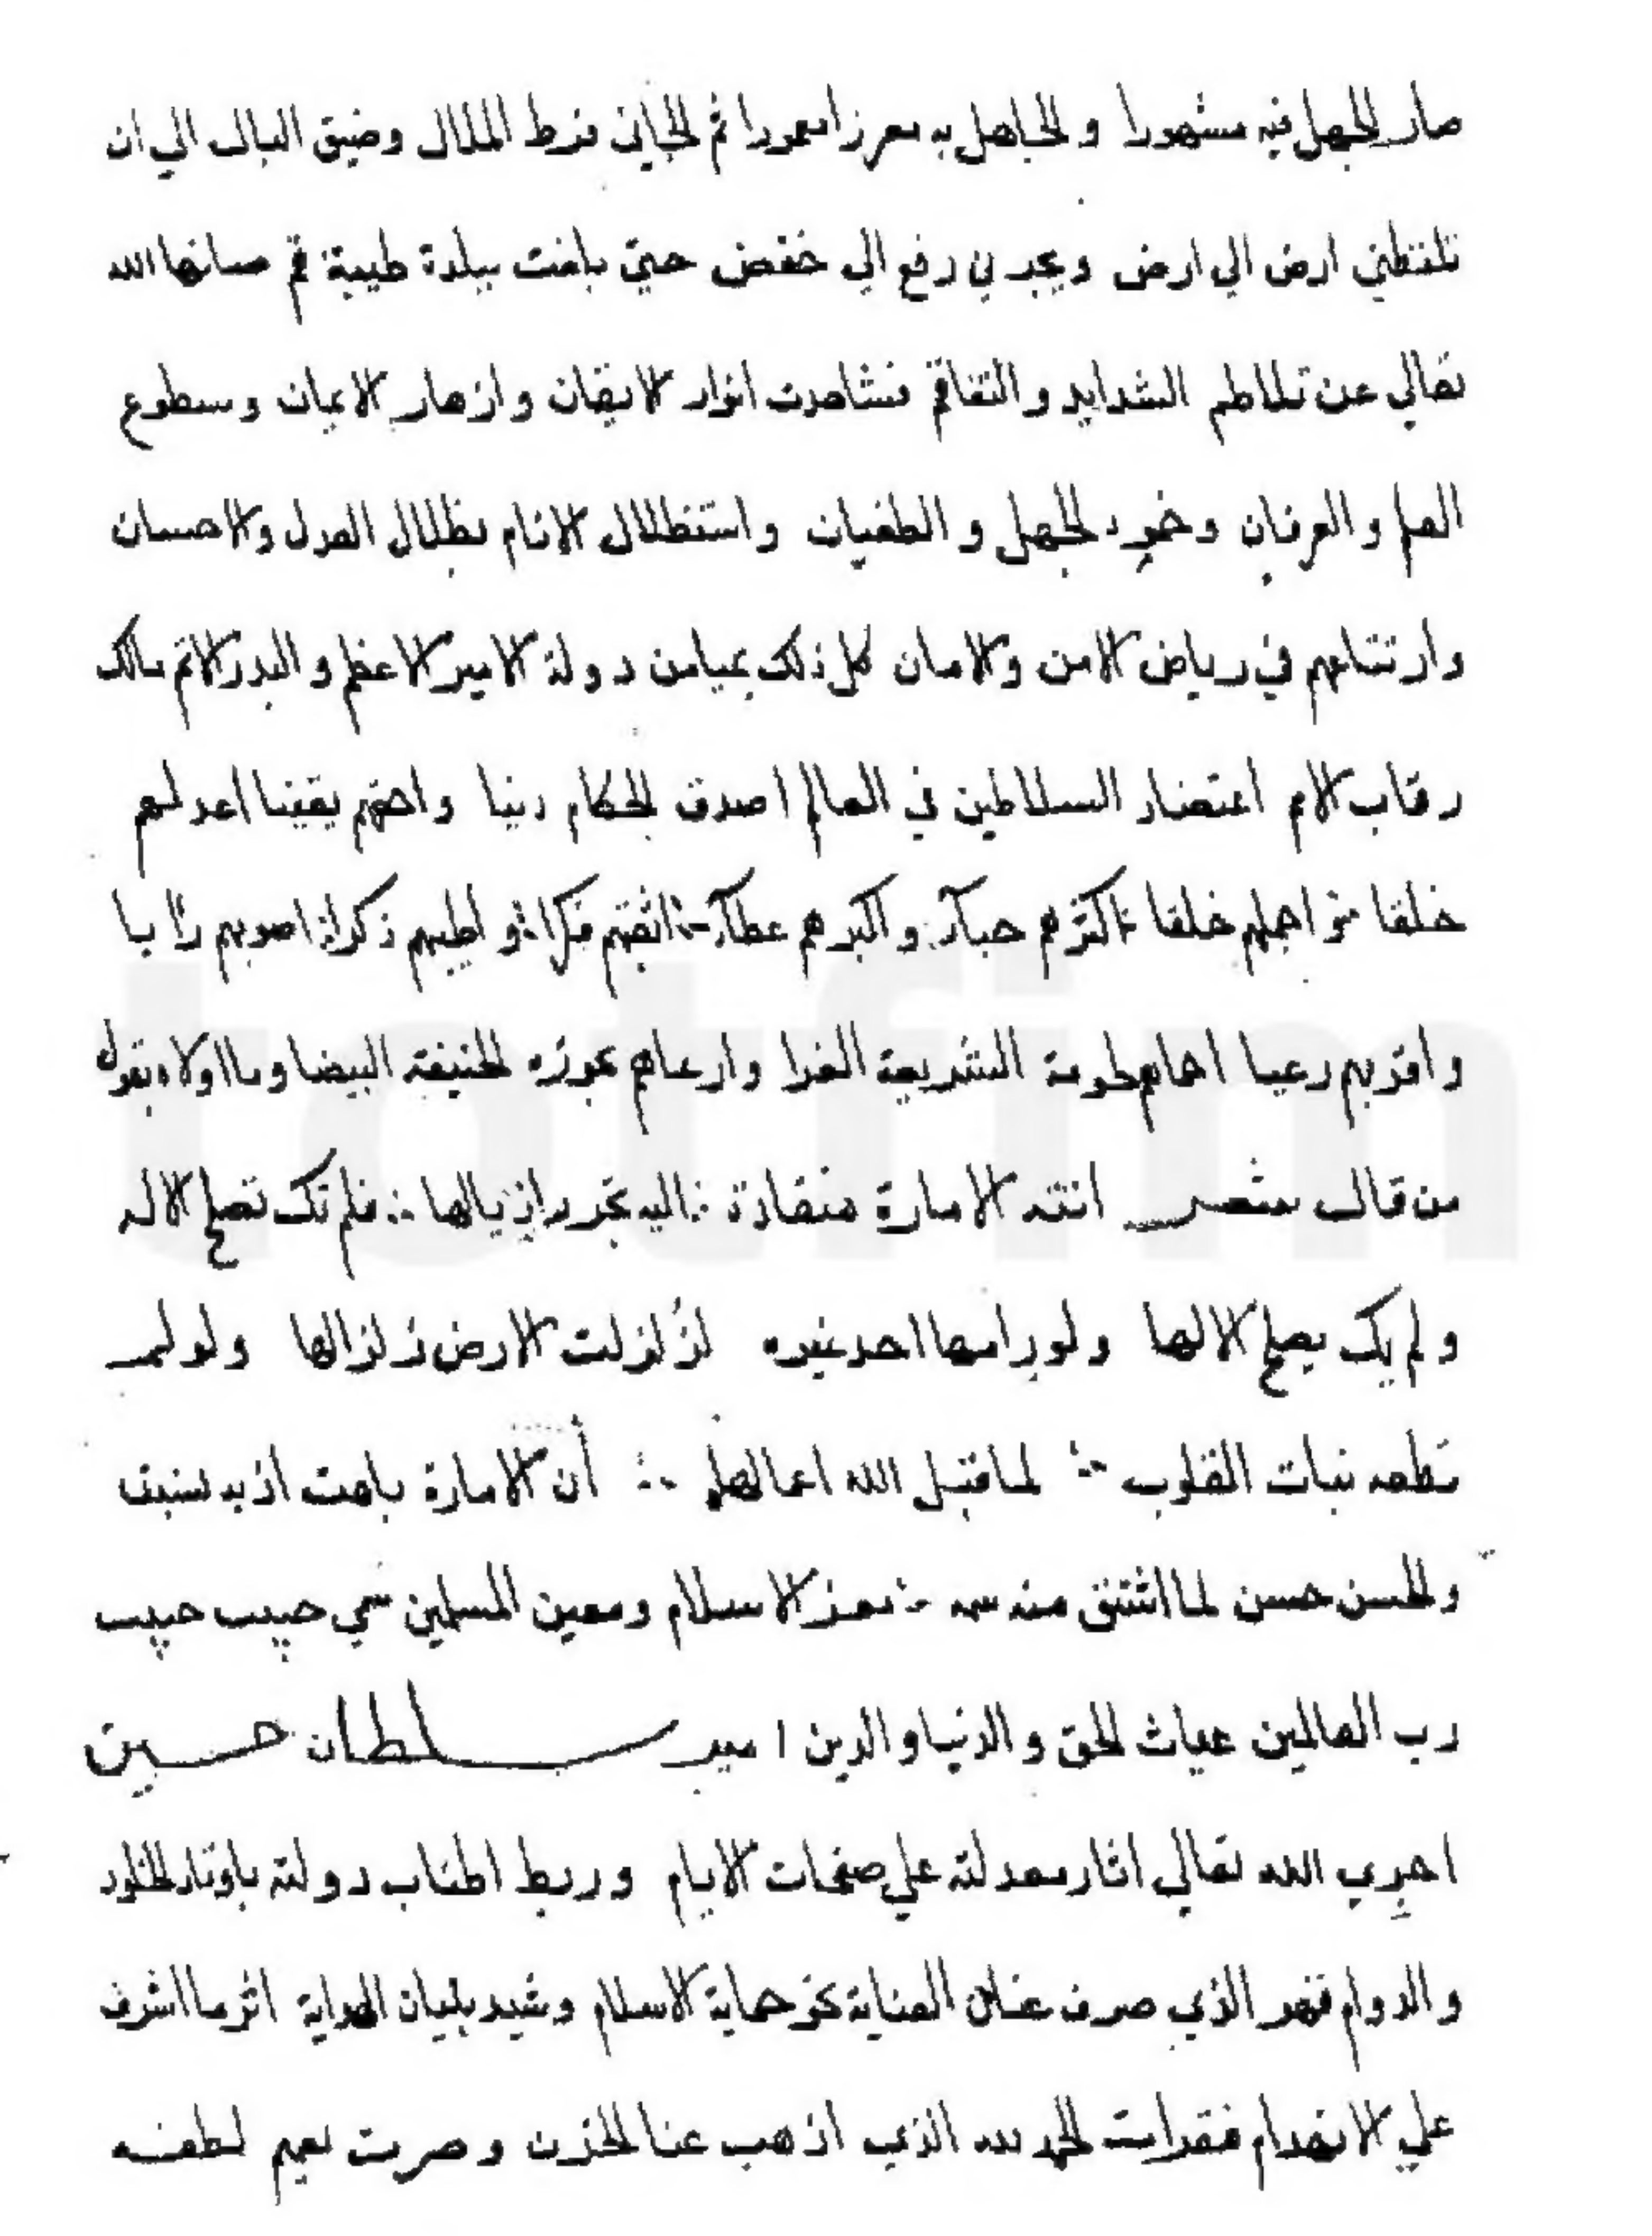 صار الجهل فيه مشهورا والجاهل به معززا معمورا ثم الجاني فرط الملال وضيق البال الي ان
تلفظني ارض الي ارض ويجرني رفع الي خفض حتي بلغت ببلدة طيبة قم صانها الله
تعالي عن تلاطم الشدايد والتفاقم فشاهدت انوار الايقان وازهار الايمان وسطوع
العلم والعرفان وخمود الجهل والطغيان واستظلال الانام بظلال العدل والاحسان
وارتتاعهم في رياض الامن والامان كل ذلك بميامن دولة الامير الاعظم والبدر الاتم مالك
رقاب الامم اعتضاد السلاطين في العالم اصدق الحكام دينا واحقهم يقينا اعدلهم
خلقا واجملهم خلقا اكثرهم حبآء واكبرهم عطآء اثقبهم فكرا واطيبهم ذكرا اصوبهم رايا
واقربهم رعيا احماهم لحومة الشريعة الغرا وارعاهم لحوزه الحنيفة البيضا وما اولاه بقول
من قال شعر اتته الامارة منقادة ∴ اليه تجرر اذيالها ∴ فلم تك تصلح الا له
ولم يك يصلح الا لها ولو رامها احد غيره لزلزلت الارض زلزالها ولو لم
تطعه نبات القلوب ∴ لما قبل الله اعمالها ∴ أن الامارة باهت اذ به نسبت
والحسن حسن لما اشتق منه سمه ∴ معز الاسلام ومعين المسلمين سمي حبيب حبيب
رب العالمين غياث الحق والدنيا والدين امير سلطان حسين
اجري الله تعالي اثار معدلته علي صفحات الايام وربط اطناب دولته باوتاد الخلود
والدوام فهو الذي صرف عنان العناية نحو حماية الاسلام وشيد بنيان الهداية اثر ما اشرف
علي الانهدام فقرات الحمد لله الذي اذهب عنا الحزن وصرت بعميم لطفه